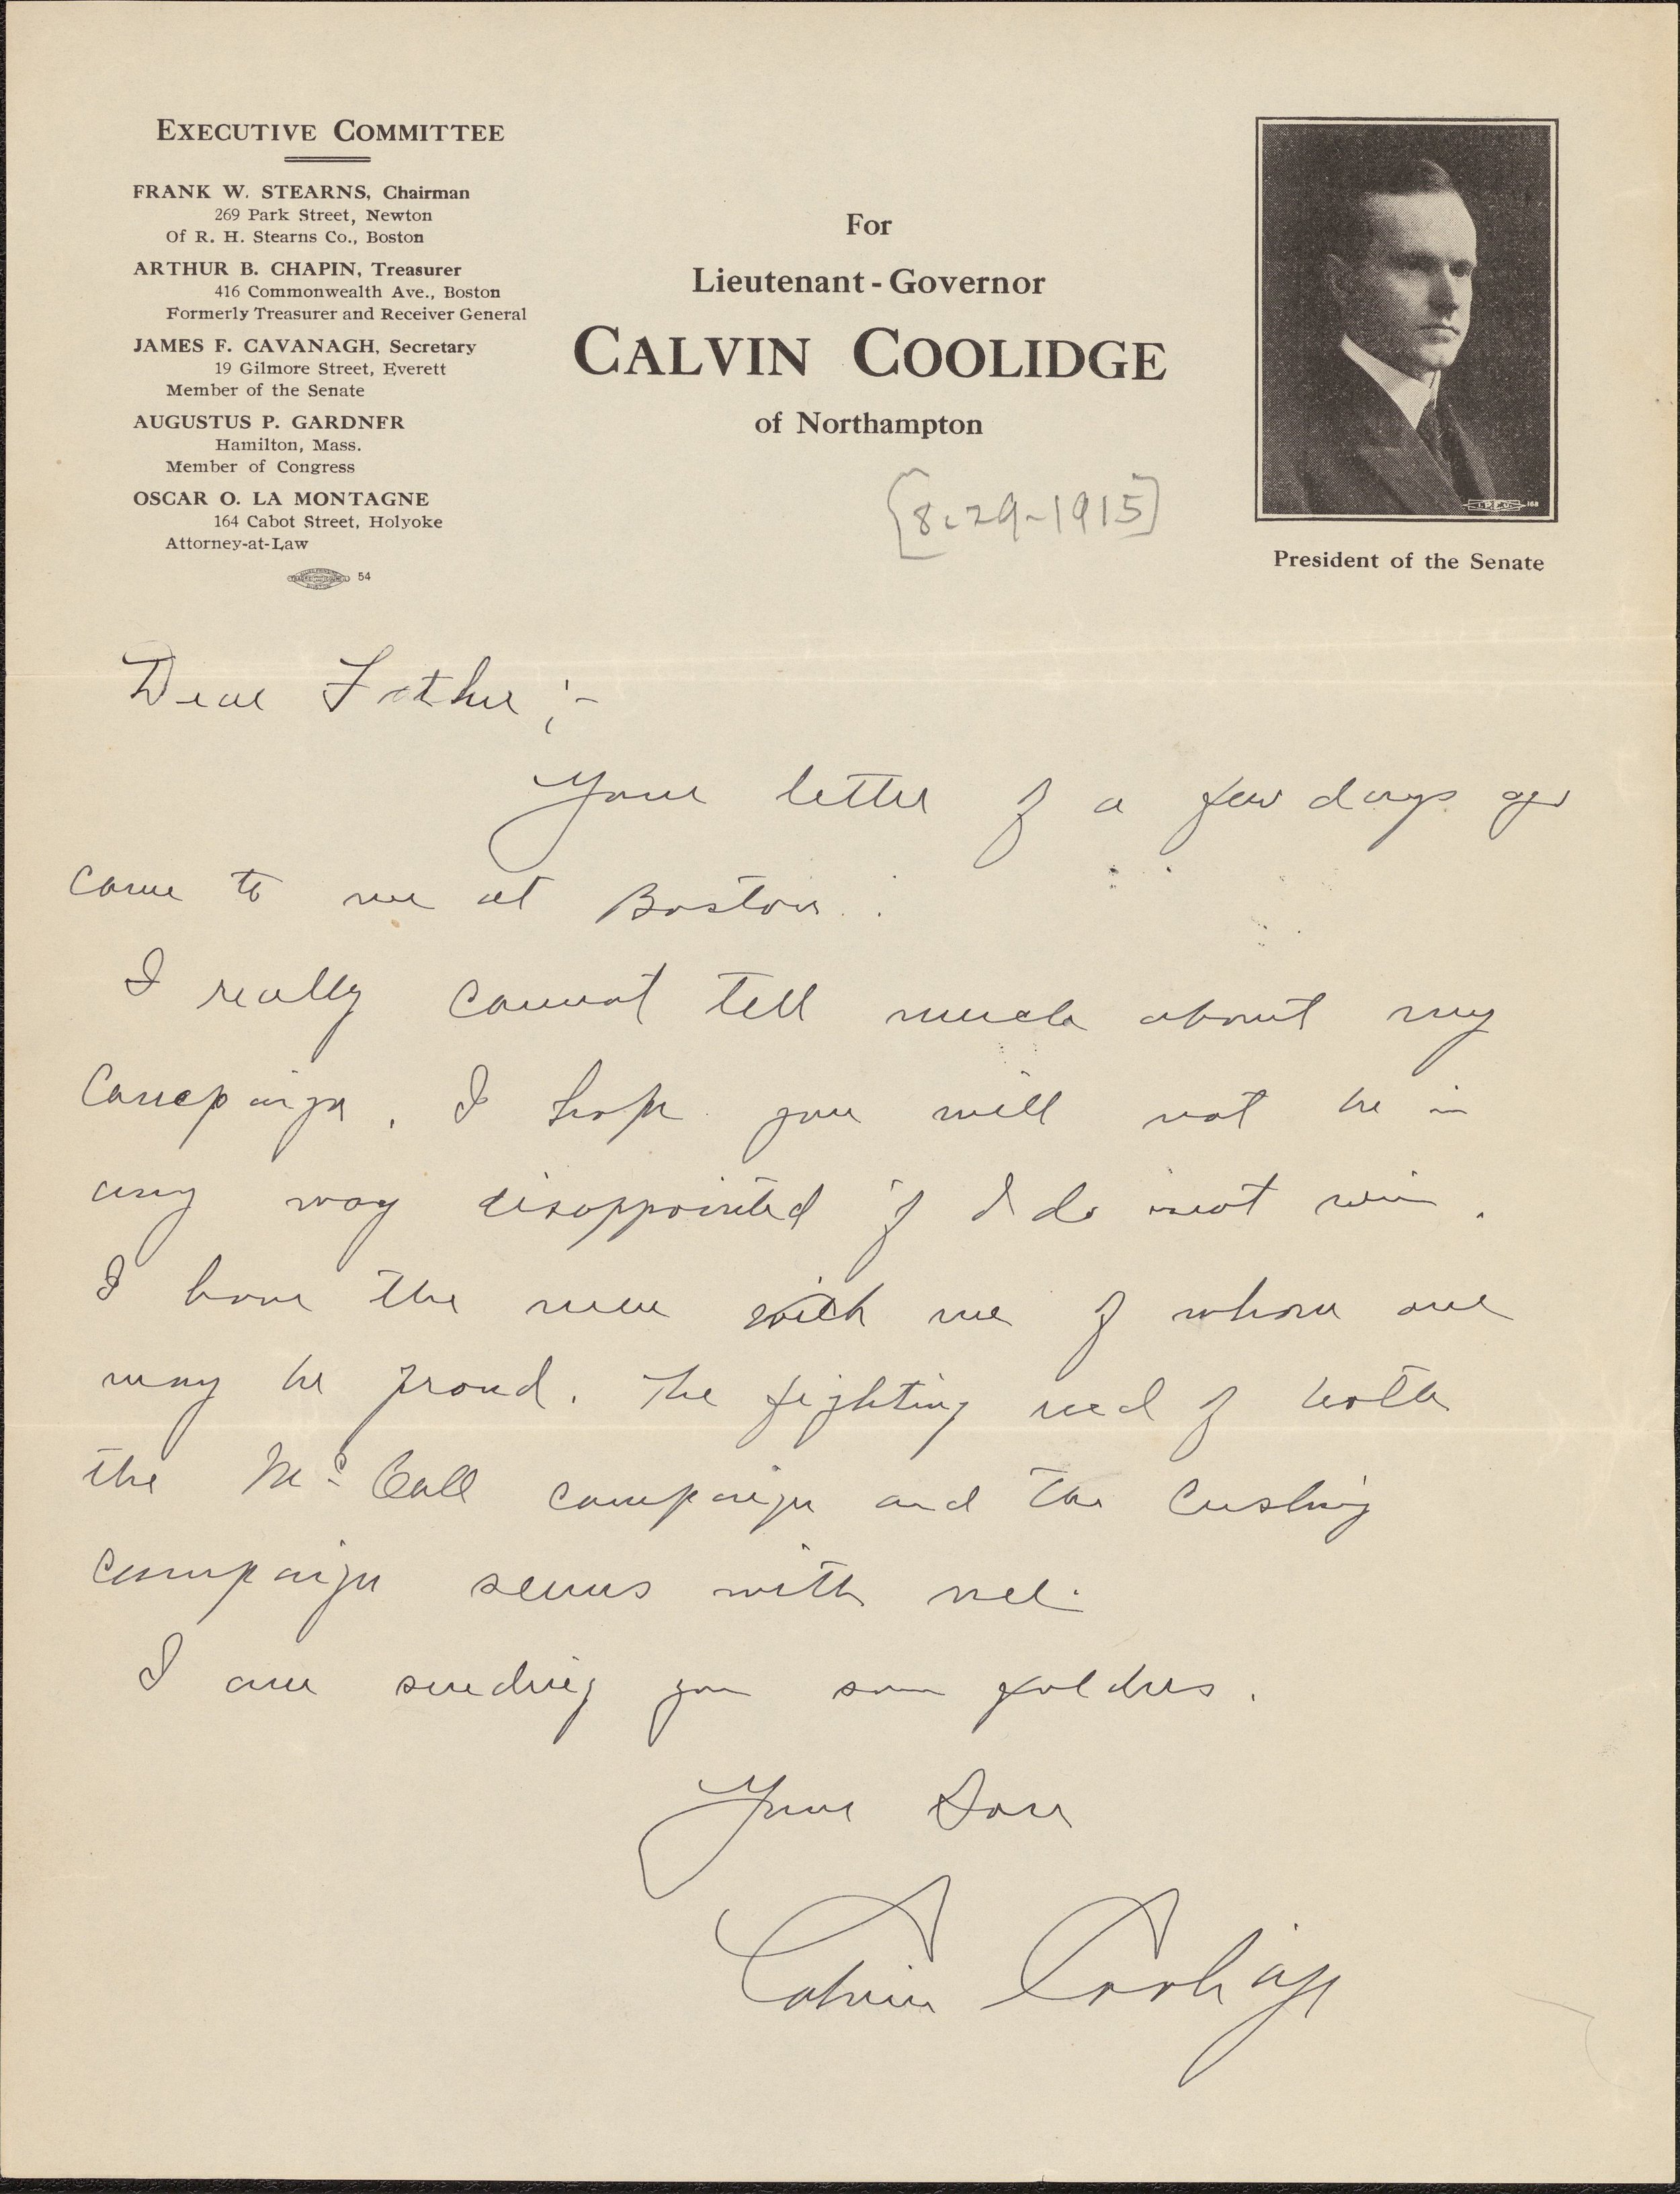 EXECUTIVE COMMITTEE
FRANK W. STEARNS, Chairman
269 Park Street, Newton
Of R. H. Stearns Co., Boston
ARTHUR B. CHAPIN, Treasurer
416 Commonwealth Ave., Boston
Formerly Treasurer and Receiver General
JAMES F. CAVANAGH, Secretary
19 Gilmore Street, Everett
Member of the Senate
AUGUSTUS P. GARDNER
Hamilton, Mass.
Member of Congress
OSCAR O. LA MONTAGNE
164 Cabot Street, Holyoke
Attorney-at-Law
54
For
Lieutenant-Governor
CALVIN COOLIDGE
of Northampton
[8-29-1915]
168
President of the Senate
Dear Father;-
Your letter of a few days ago
came to me at Boston.
I really cannot tell much about my
campaign. I hope you will not be in
any way disappointed if I do not win.
I have the men with me of whom one
may be proud. The fighting end of both
the McCall campaign and the Cushing
campaign seems with me.
I am sending you some folders.
Your Son
Calvin Coolidge